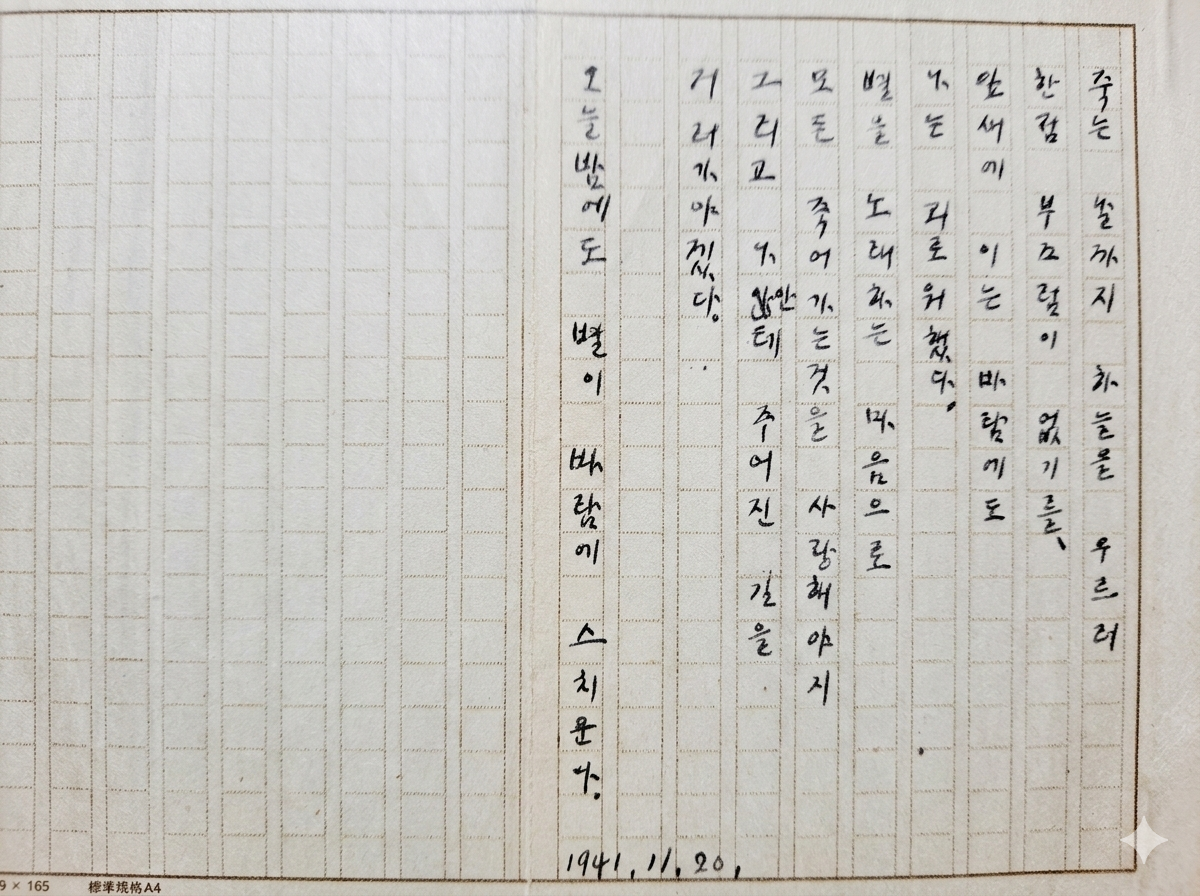 죽는 날까지 하늘을 우르러
한점 부끄럼이 없기를、
잎새에 이는 바람에도
나는 괴로워했다.
별을 노래하는 마음으로
모든 죽어가는것을 사랑해야지
그리고 나안테 주어진 길을
거러가야겠다.
오늘밤에도 별이 바람에 스치운다.
1941.11.20.
9 × 165 標準規格A4